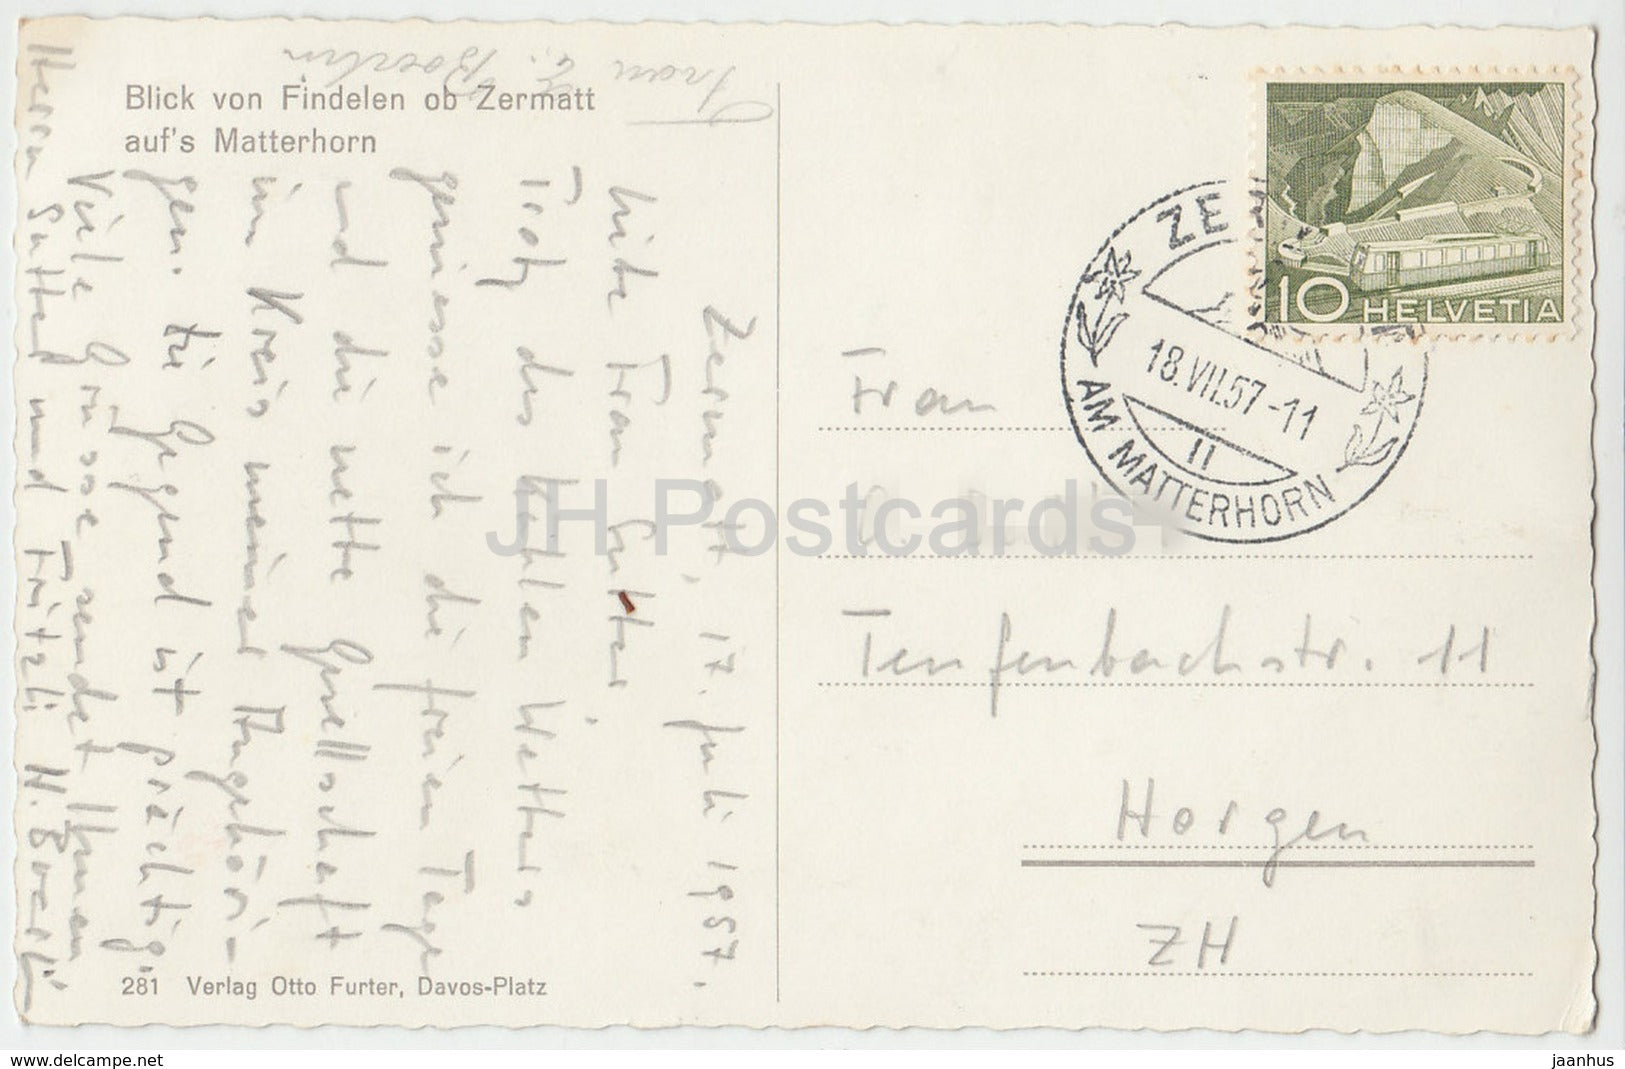 Blick von Findelen ob Zermatt
auf's Matterhorn
Frau
Zermatt, 17. Juli 1957.
Liebe Frau Sutter,
Trotz des kühlen Wetters
geniesse ich die freien Tage
und die nette Gesellschaft
im Kreis meiner Angehöri-
gen. Die Gegend ist prächtig.
Viele Grüsse sendet Ihnen,
Herrn Sutter und Fritzli H. Boerlin
281 Verlag Otto Furter, Davos-Platz
10 HELVETIA
ZE
18.VII.57-11
11
AM MATTERHORN
Frau
Teufenbachstr. 11
Horgen
ZH
JH Postcards
jaanhus.delcampe.net
jaanhus